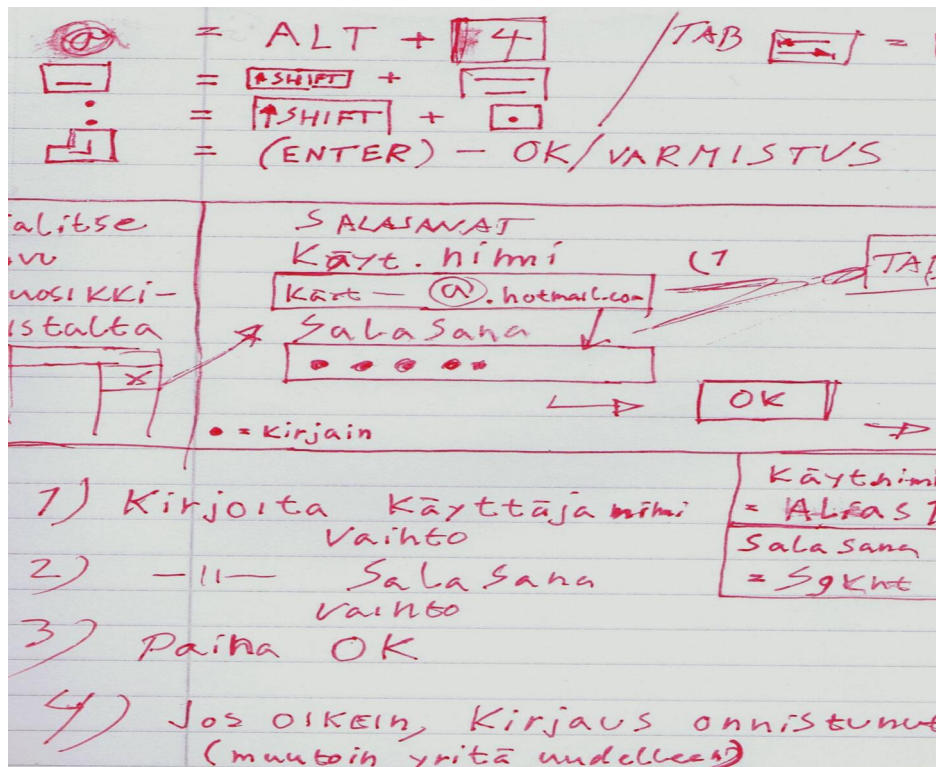 @ = ALT + 4 / TAB =
− = ↑SHIFT +
: = ↑SHIFT + •
= (ENTER) − OK/VARMISTUS
alitse
vu
uosikki-
istalta
x
SALASANAT
Käyt. nimi
Käyt — @.hotmail.com
Salasana
• • • • •
(1
TAB
OK
• = Kirjain
1) Kirjoita Käyttäjä nimi
vaihto
2) —||— Salasana
vaihto
3) Paina OK
4) Jos OIKEIN, Kirjaus onnistunut
(muutoin yritä uudelleen)
Käyt.nimi
= ALIAS
Salasana
=